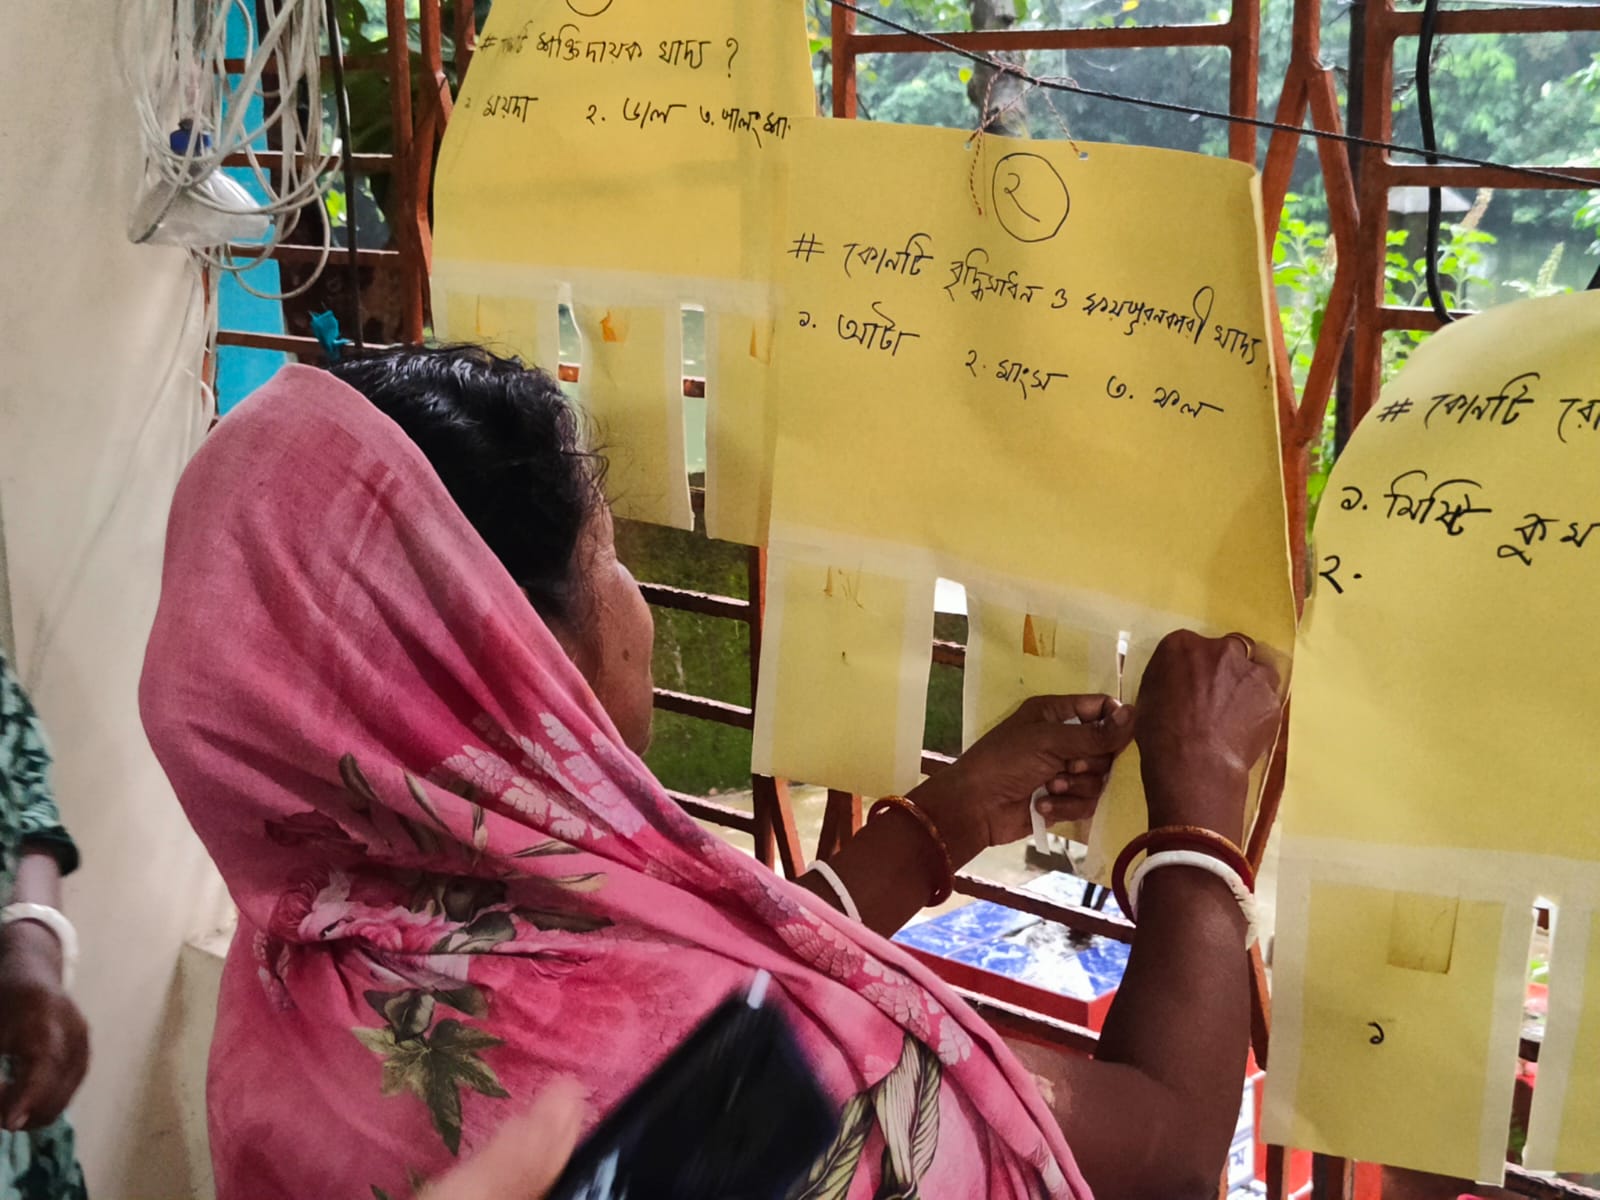 # কোনটি শক্তিদায়ক খাদ্য ?
১. ময়দা ২. ডাল ৩. পালং শা
২
# কোনটি বৃদ্ধিসাধন ও ক্ষয়পুরনকারী খাদ্য ?
১. আটা ২. মাংস ৩. ফল
# কোনটি রো
১. মিষ্টি কুম
২.
১